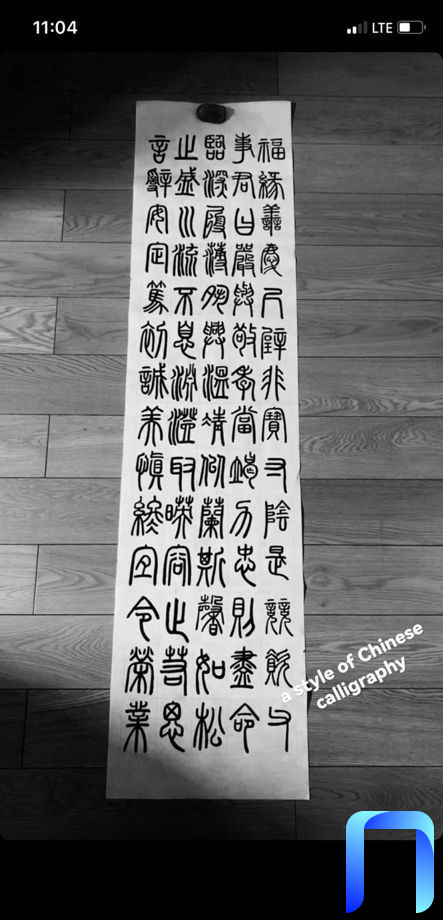 11:04
LTE
福緣善慶尺璧非寶寸陰是競資父
事君曰嚴與敬孝當竭力忠則盡命
臨深履薄夙興溫凊似蘭斯馨如松
之盛川流不息淵澄取暎容止若思
言辭安定篤初誠美慎終宜令榮業
a style of Chinese
calligraphy